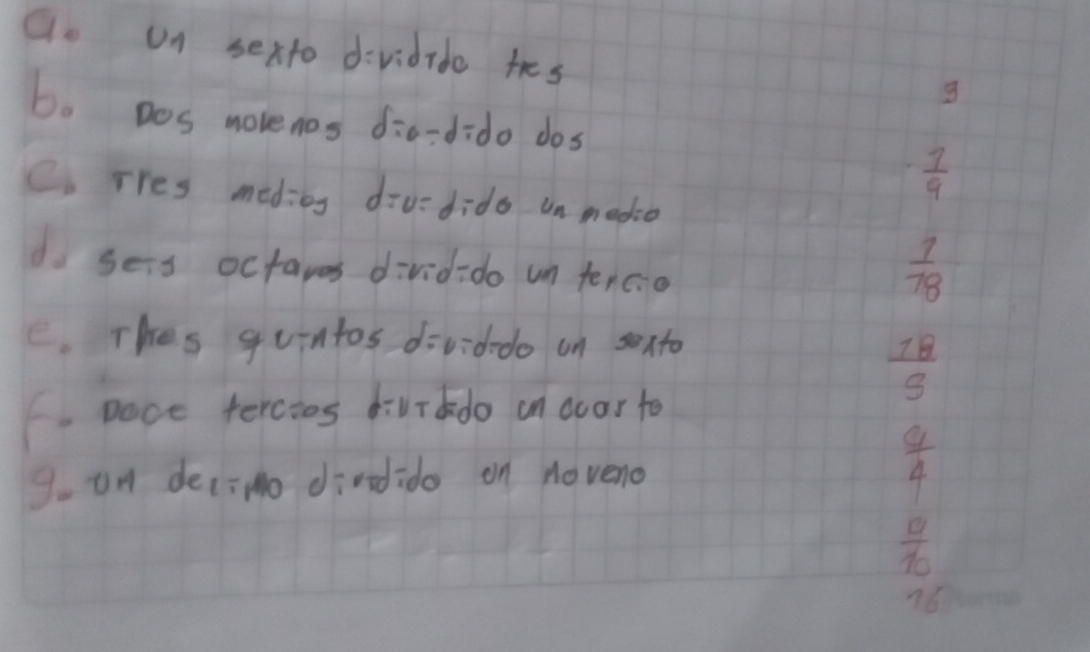 a. un sexto dividido tres
b. Dos novenos dividido dos
c. Tres medios dividido un medio
d. seis octavos dividido un tercio
e. Tres quintos dividido un sexto
f. Doce tercios dividido un cuarto
g. un decimo dividido un noveno
3
1/9
1/18
18/5
9/4
9/10
16